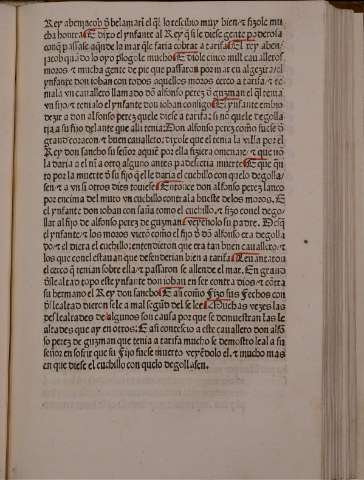 Rey abenjacob q̃ belamari el q̃l lo rescibio muy bien ⁊ fizole mu
cha honrra E dixo el ynfante al Rey q̃ si le diese gente poderosa
con q̃ passase aquẽde la mar q̃ le faria cobrar a tarifa E el rey aben
jacob quãdo lo oyo plogole mucho E diole cinco mill caualleros
moros ⁊ mucha gente de pie que passaron por mar en algezira ⁊ el
ynfante don iohan con todos aquellos moros cerco a tarifa ⁊ te
nia la vn cauallero llamado dõ alfonso perez ð guzman el q̃l tenia
vn fijo ⁊ tenialo el ynfante don iohan consigo E el ynfante embio
dezir a don alfonso perez que le diese a tarifa si nõ que le degolla
ria a su fijo delante que alli tenia: Don alfonso perez como fuese ð
grand coraçon ⁊ buen cauallero: dixole que el tenia la villa por el
Rey don sancho su señor aquiẽ por ella fiziera omenaje ⁊ que nõ
la daria a el nĩ a otro alguno antes padesceria muerte E que quã
to por la muerte ð su fijo q̃ el le daria el cuchillo con quelo degolla
sen ⁊ a vn si otros diez touiese Entonce don alfonso perez lanco
por encima del muro vn cuchillo contra la hueste de los moros. E
el ynfante don iohan con saña tomo el cuchillo ⁊ fizo con el dego
llar al fijo de alfonso perez de guzman veyẽdolo su padre. Desq̃
el ynfante ⁊ los moros vierõ como el fijo ð dõ alfonso era degolla
do ⁊ el diera el cuchillo: entendieron que era tan buen cauallero ⁊
los que con el estauan que defenderian bien a tarifa Leuantaron
el cerco q̃ tenian sobre ella ⁊ passaron se allende el mar. En grand
disleal tad topo este ynfante don iohan en ser contra dios ⁊ cõtra
su hermano el Rey don sancho E asi como fizo sus fechos con
disleal tad dieron le le a mal segũd del se lee Muchas vezes las
deslealtades de algunos son causa por que se demuestran las le
altades que ay en otros: E asi contescio a este cauallero don alfõ
so perez de guzman que tenia a tarifa mucho se demostro leal a su
señor en sofrir que su fijo fuese muerto veyẽdolo el. ⁊ mucho mas
en que diese el cuchillo con quelo degollasen.